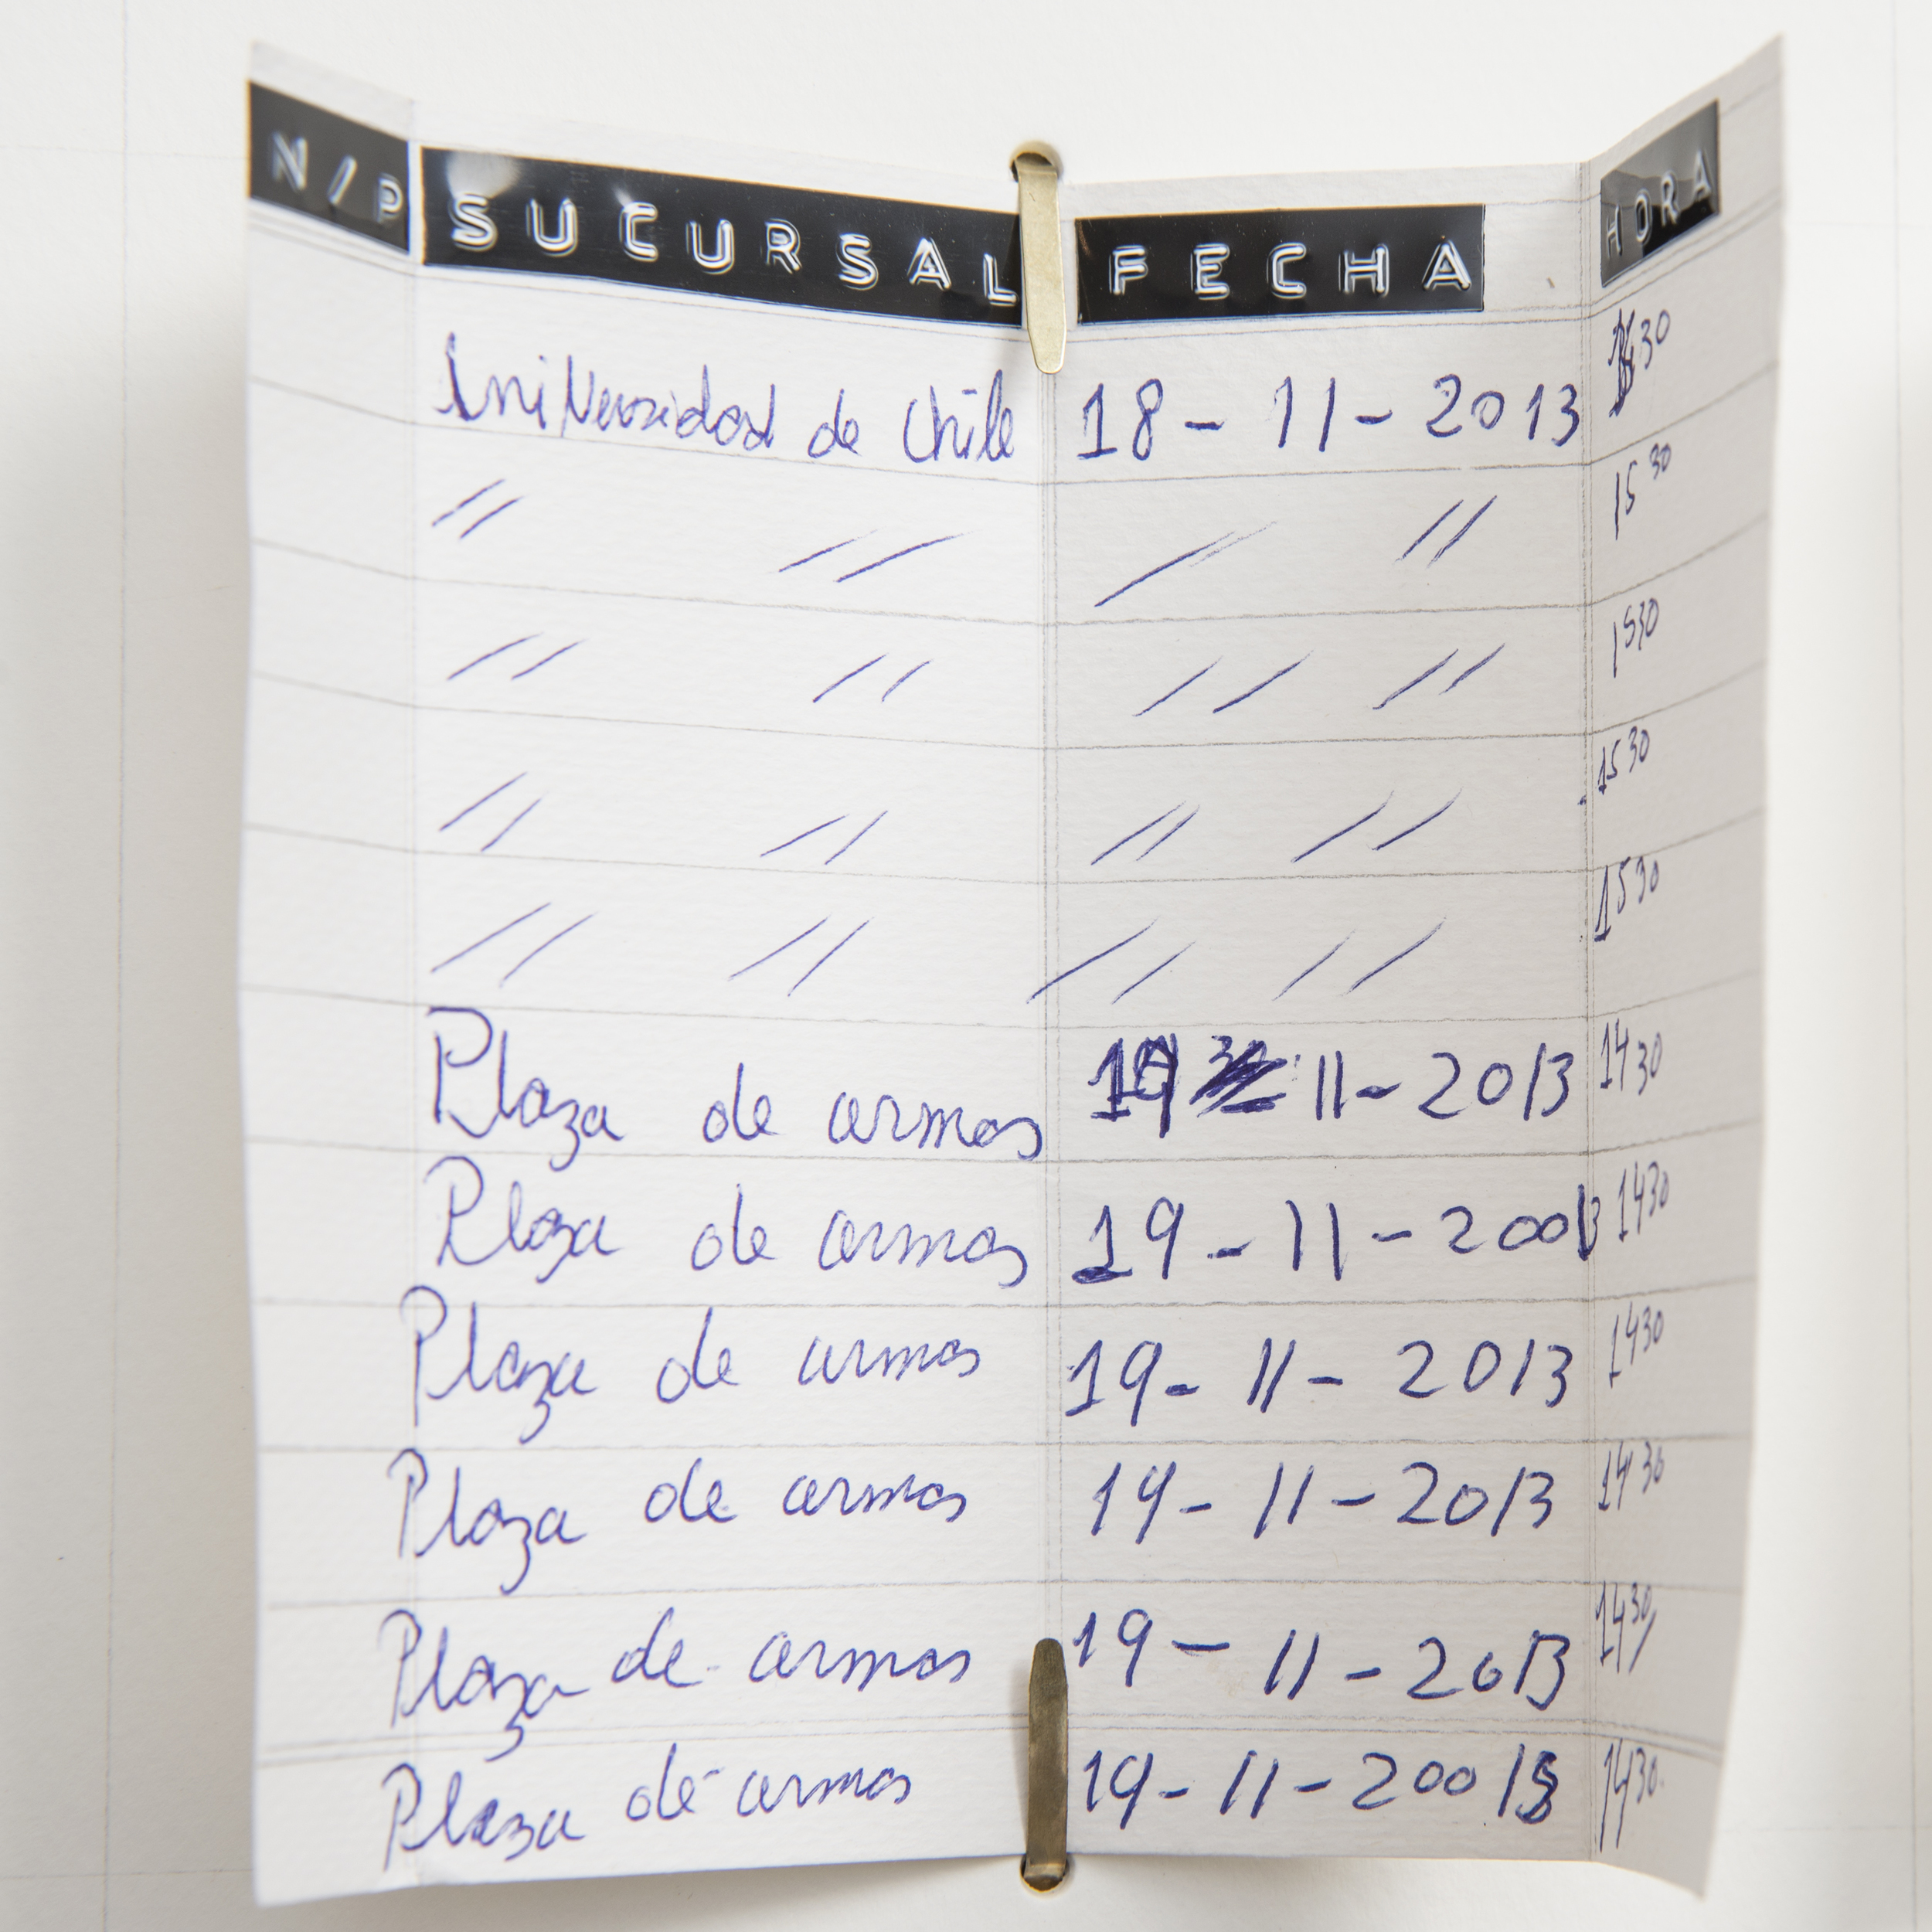 N/P SUCURSAL FECHA HORA
Universidad de Chile 18 - 11 - 2013 30
// // // // 15 30
// // // // 1530
// // // // 1530
// // // // 1530
Plaza de armas 19 11 - 2013 1430
Plaza de armas 19 - 11 - 20013 1430
Plaza de armas 19 - 11 - 2013 1430
Plaza de armas 19 - 11 - 2013 1430
Plaza de armas 19 - 11 - 2013 1430
Plaza de armas 19 - 11 - 20013 1430